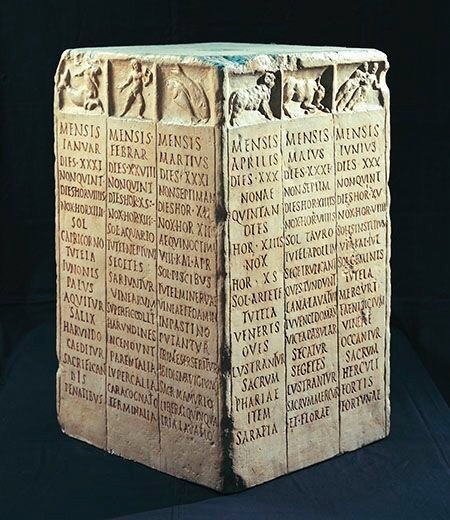 MENSIS
IANVAR
DIES·XXXI
NON·QVINT
DIES·HOR·VIIII
NOX·HOR·XIIII
SOL
CAPRICORNO
TVTELA
IVNONIS
PALVS
AQVITVR
SALIX
HARVNDO
CAEDITVR
SACRIFICAN
DIS
PENATIBVS
MENSIS
FEBRAR
DIES·XXVIII
NON·QVINT
DIES·HOR·X·S·
NOX·HOR·XIII·S
SOL·AQVARIO
TVTEL·NEPTVNI
SEGETES
SARIVNTVR
VINEARVM
SVPERFIC·COLIT
HARVNDINES
INCENDVNT
PARENTALIA
LVPERCALIA
CARA·COGNATIO
TERMINALIA
MENSIS
MARTIVS
DIES·XXXI
NON·SEPTIMAN
DIES·HOR·XII
NOX·HOR·XII
AEQVINOCTIVM
VIII·KAL·APR
SOL·PISCIBVS
TVTEL·MINERVAE
VINEAE·PEDAMIN
IN·PASTINO
PVTANTVR
TRIMESTR·SERITVR
ISIDIS·NAVIGIVM
SACR·MAMVRIO
LIBERAL·QVINQVA
TRIA·LAVATIO
MENSIS
APRILIS
DIES·XXX
NONAE
QVINTAN
DIES
HOR·XIIIS
NOX
HOR·X·S
SOL·ARIETE
TVTELA
VENERIS
OVES
LVSTRANTVR
SACRVM
PHARIAE
ITEM
SARAPIA
MENSIS
MAIVS
DIES·XXXI
NON·SEPTIM
DIES·HOR·XIIIIS
NOX·HOR·VIIIIS
SOL·TAVRO
TVTEL·APOLLIN
SEGET·RVNCANT
OVES·TONDENT
LANA·LAVATVR
IVVENCI·DOMANT
VICEA·PABVLAR
SECATVR
SEGETES
LVSTRANTVR
SACRVM·MERCVR
ET·FLORAE
MENSIS
IVNIVS
DIES·XXX
NON·QVINT
DIES·HOR·XV
NOX·HOR·VIIII
SOLIS·INSTITIVM
VIII·KAL·IVL
SOL·GEMINIS
TVTELA
MERCVRI
FAENISICIVM
VINEAE
OCCANTVR
SACRVM
HERCVLI
FORTIS
FORTVNAE